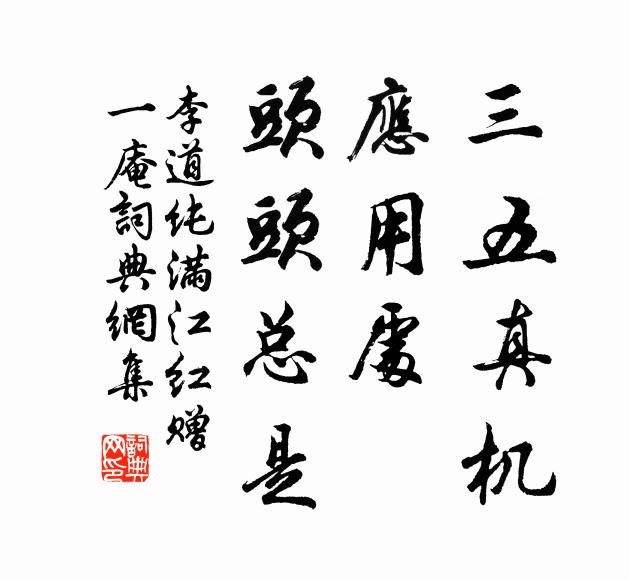 三五真机
應用處
頭頭总是
李道纯满江红赠
一庵詞典網集
詞典網印